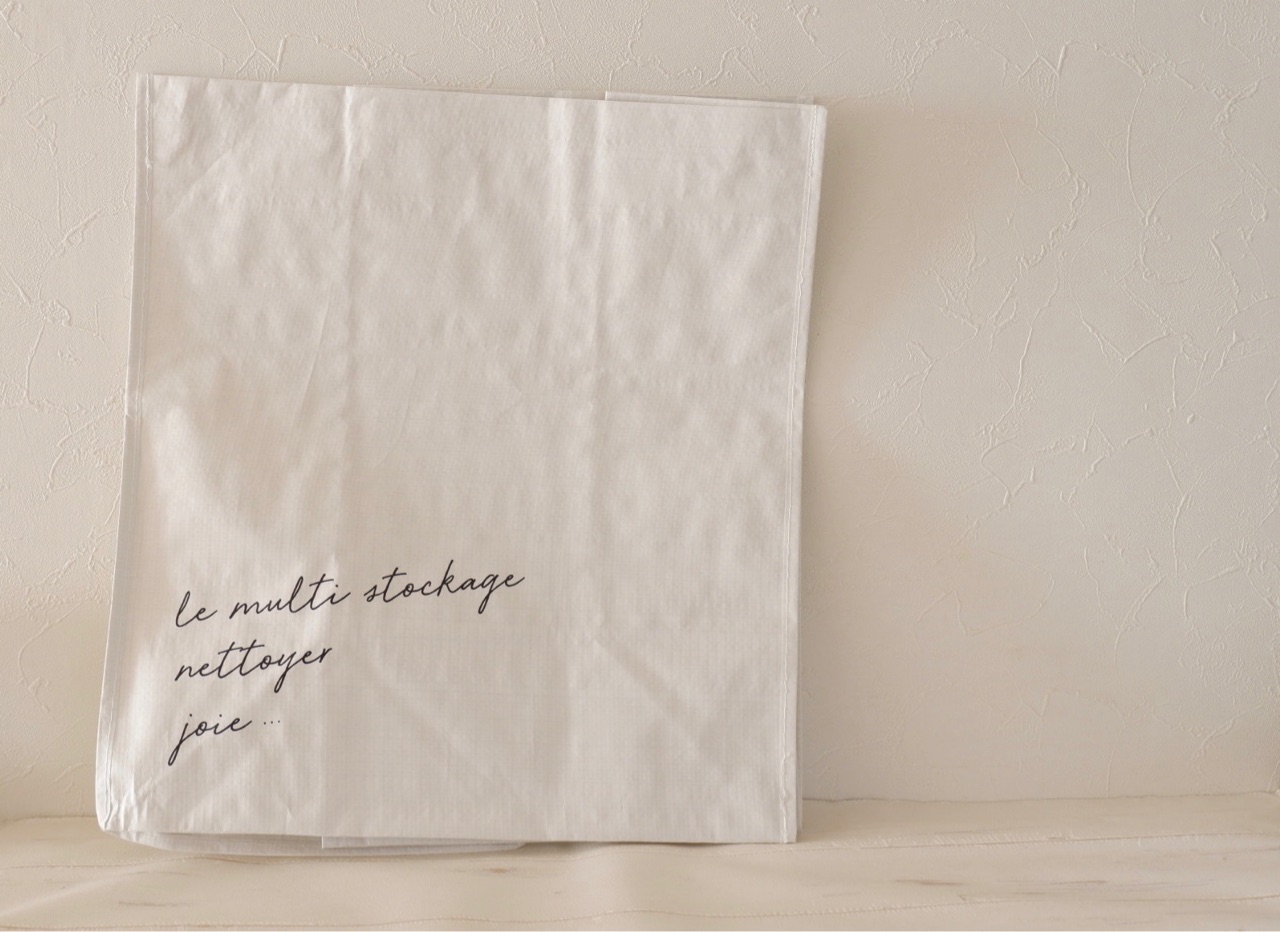 le multi stockage
nettoyer
joie ...